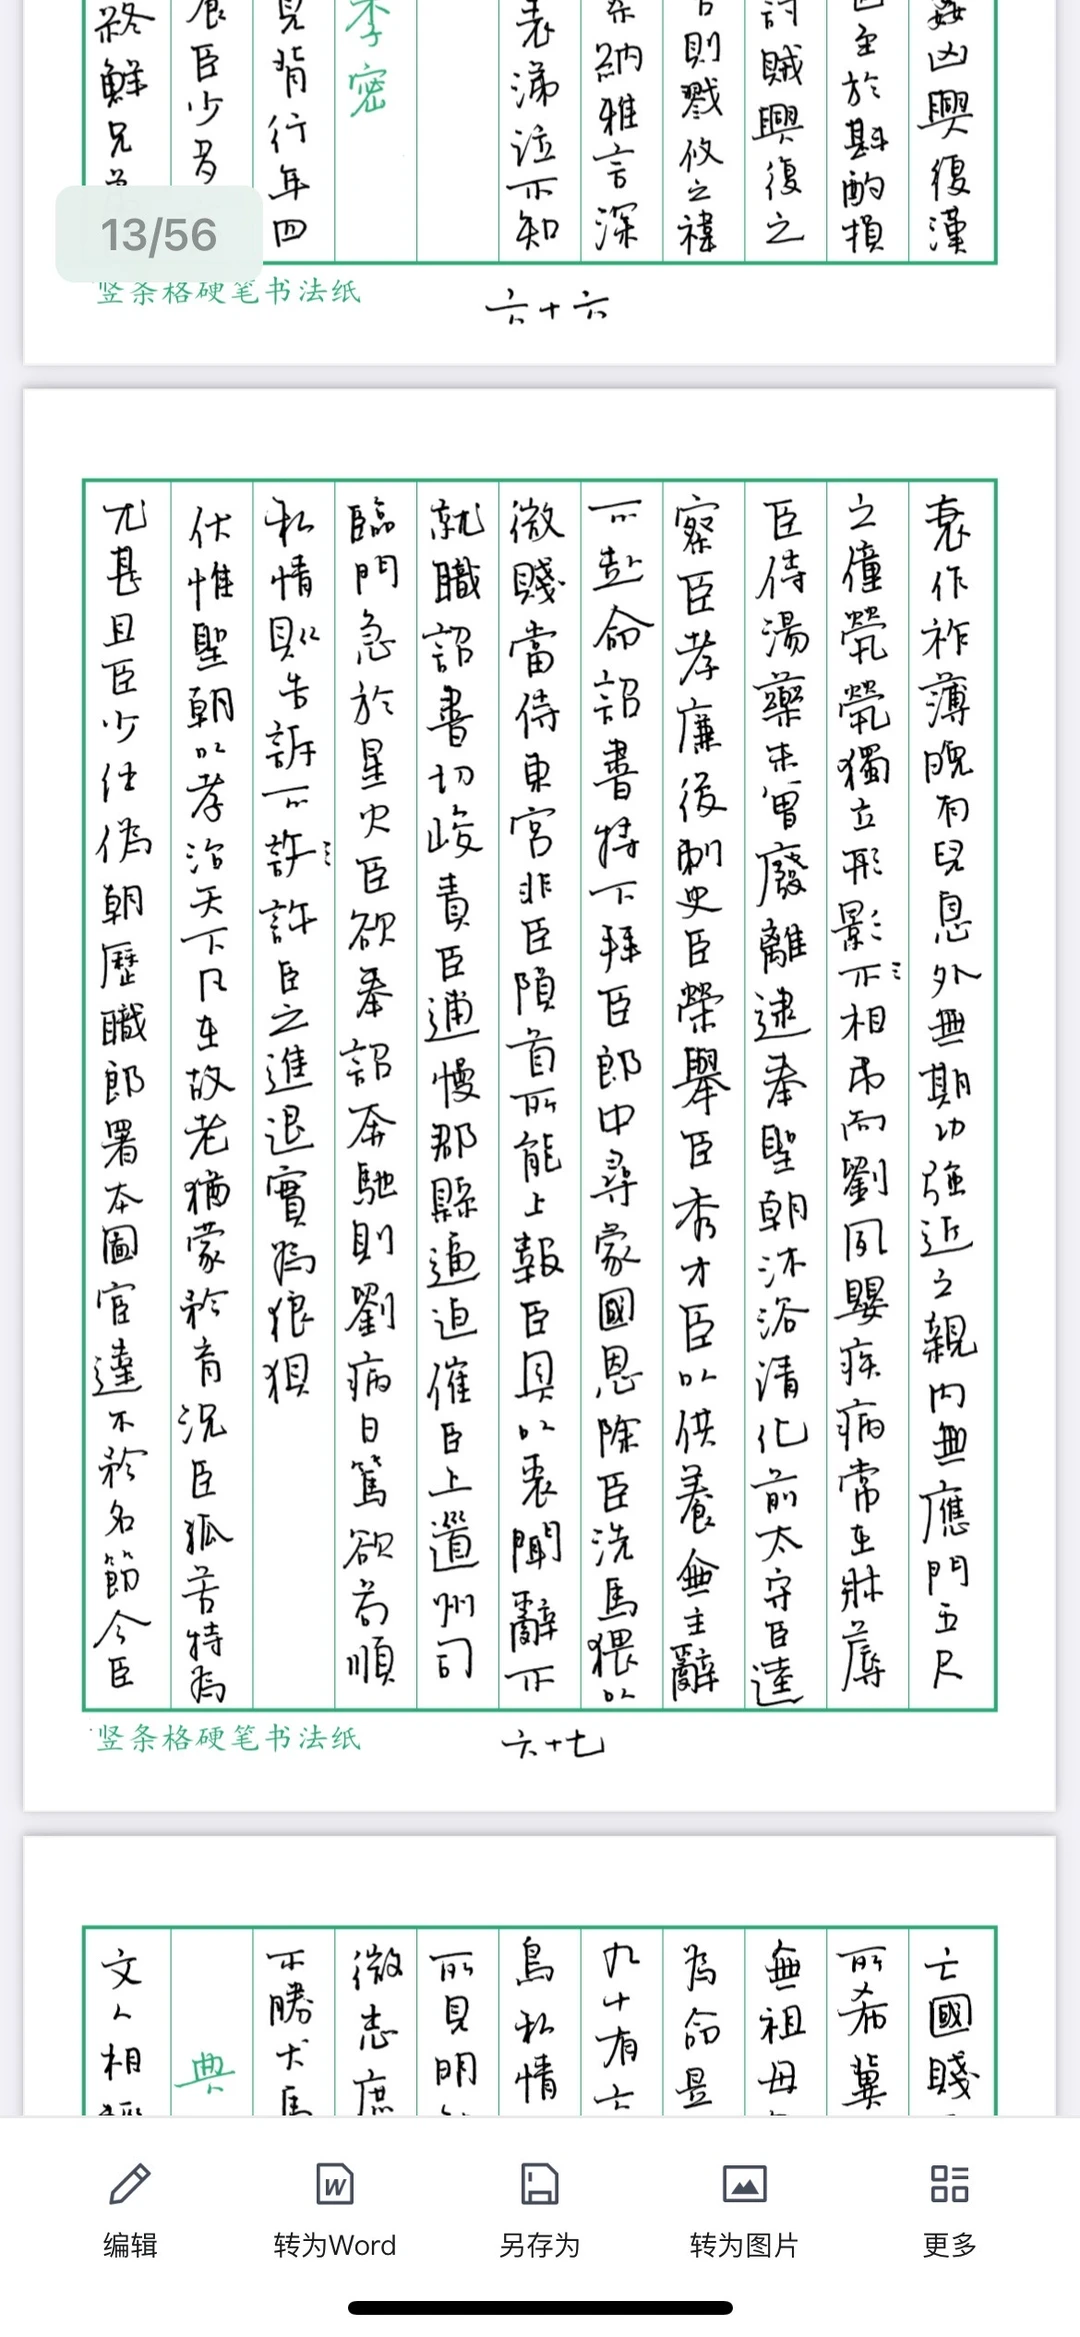 姦凶興復漢
至於斟酌損
討賊興復之
則戮攸之禕
納雅言深
表涕泣不知
李密
見背行年四
臣少多
終鮮兄弟
13/56
竖条格硬笔书法纸
六十六
衰作祚薄晚有兒息外無期功強近之親内無應門五尺
之僮煢煢獨立形影不相弔而劉夙嬰疾病常在牀蓐
臣侍湯藥未曾廢離逮奉聖朝沐浴清化前太守臣逵
察臣孝廉後刺史臣榮舉臣秀才臣以供養無主辭
不赴命詔書特下拜臣郎中尋蒙國恩除臣洗馬猥以
微賤當侍東宮非臣隕首所能上報臣具以表聞辭不
就職詔書切峻責臣逋慢郡縣逼迫催臣上道州司
臨門急於星火臣欲奉詔奔馳則劉病日篤欲苟順
私情則告訴不許許臣之進退實為狼狽
伏惟聖朝以孝治天下凡在故老猶蒙矜育況臣孤苦特為
尤甚且臣少仕偽朝歷職郎署本圖宦達不矜名節今臣
竖条格硬笔书法纸
六十七
亡國賤
所希冀
無祖母
為命是
九十有六
鳥私情
所見明
微志庶
不勝犬馬
典
文人相輕
编辑
转为Word
另存为
转为图片
更多